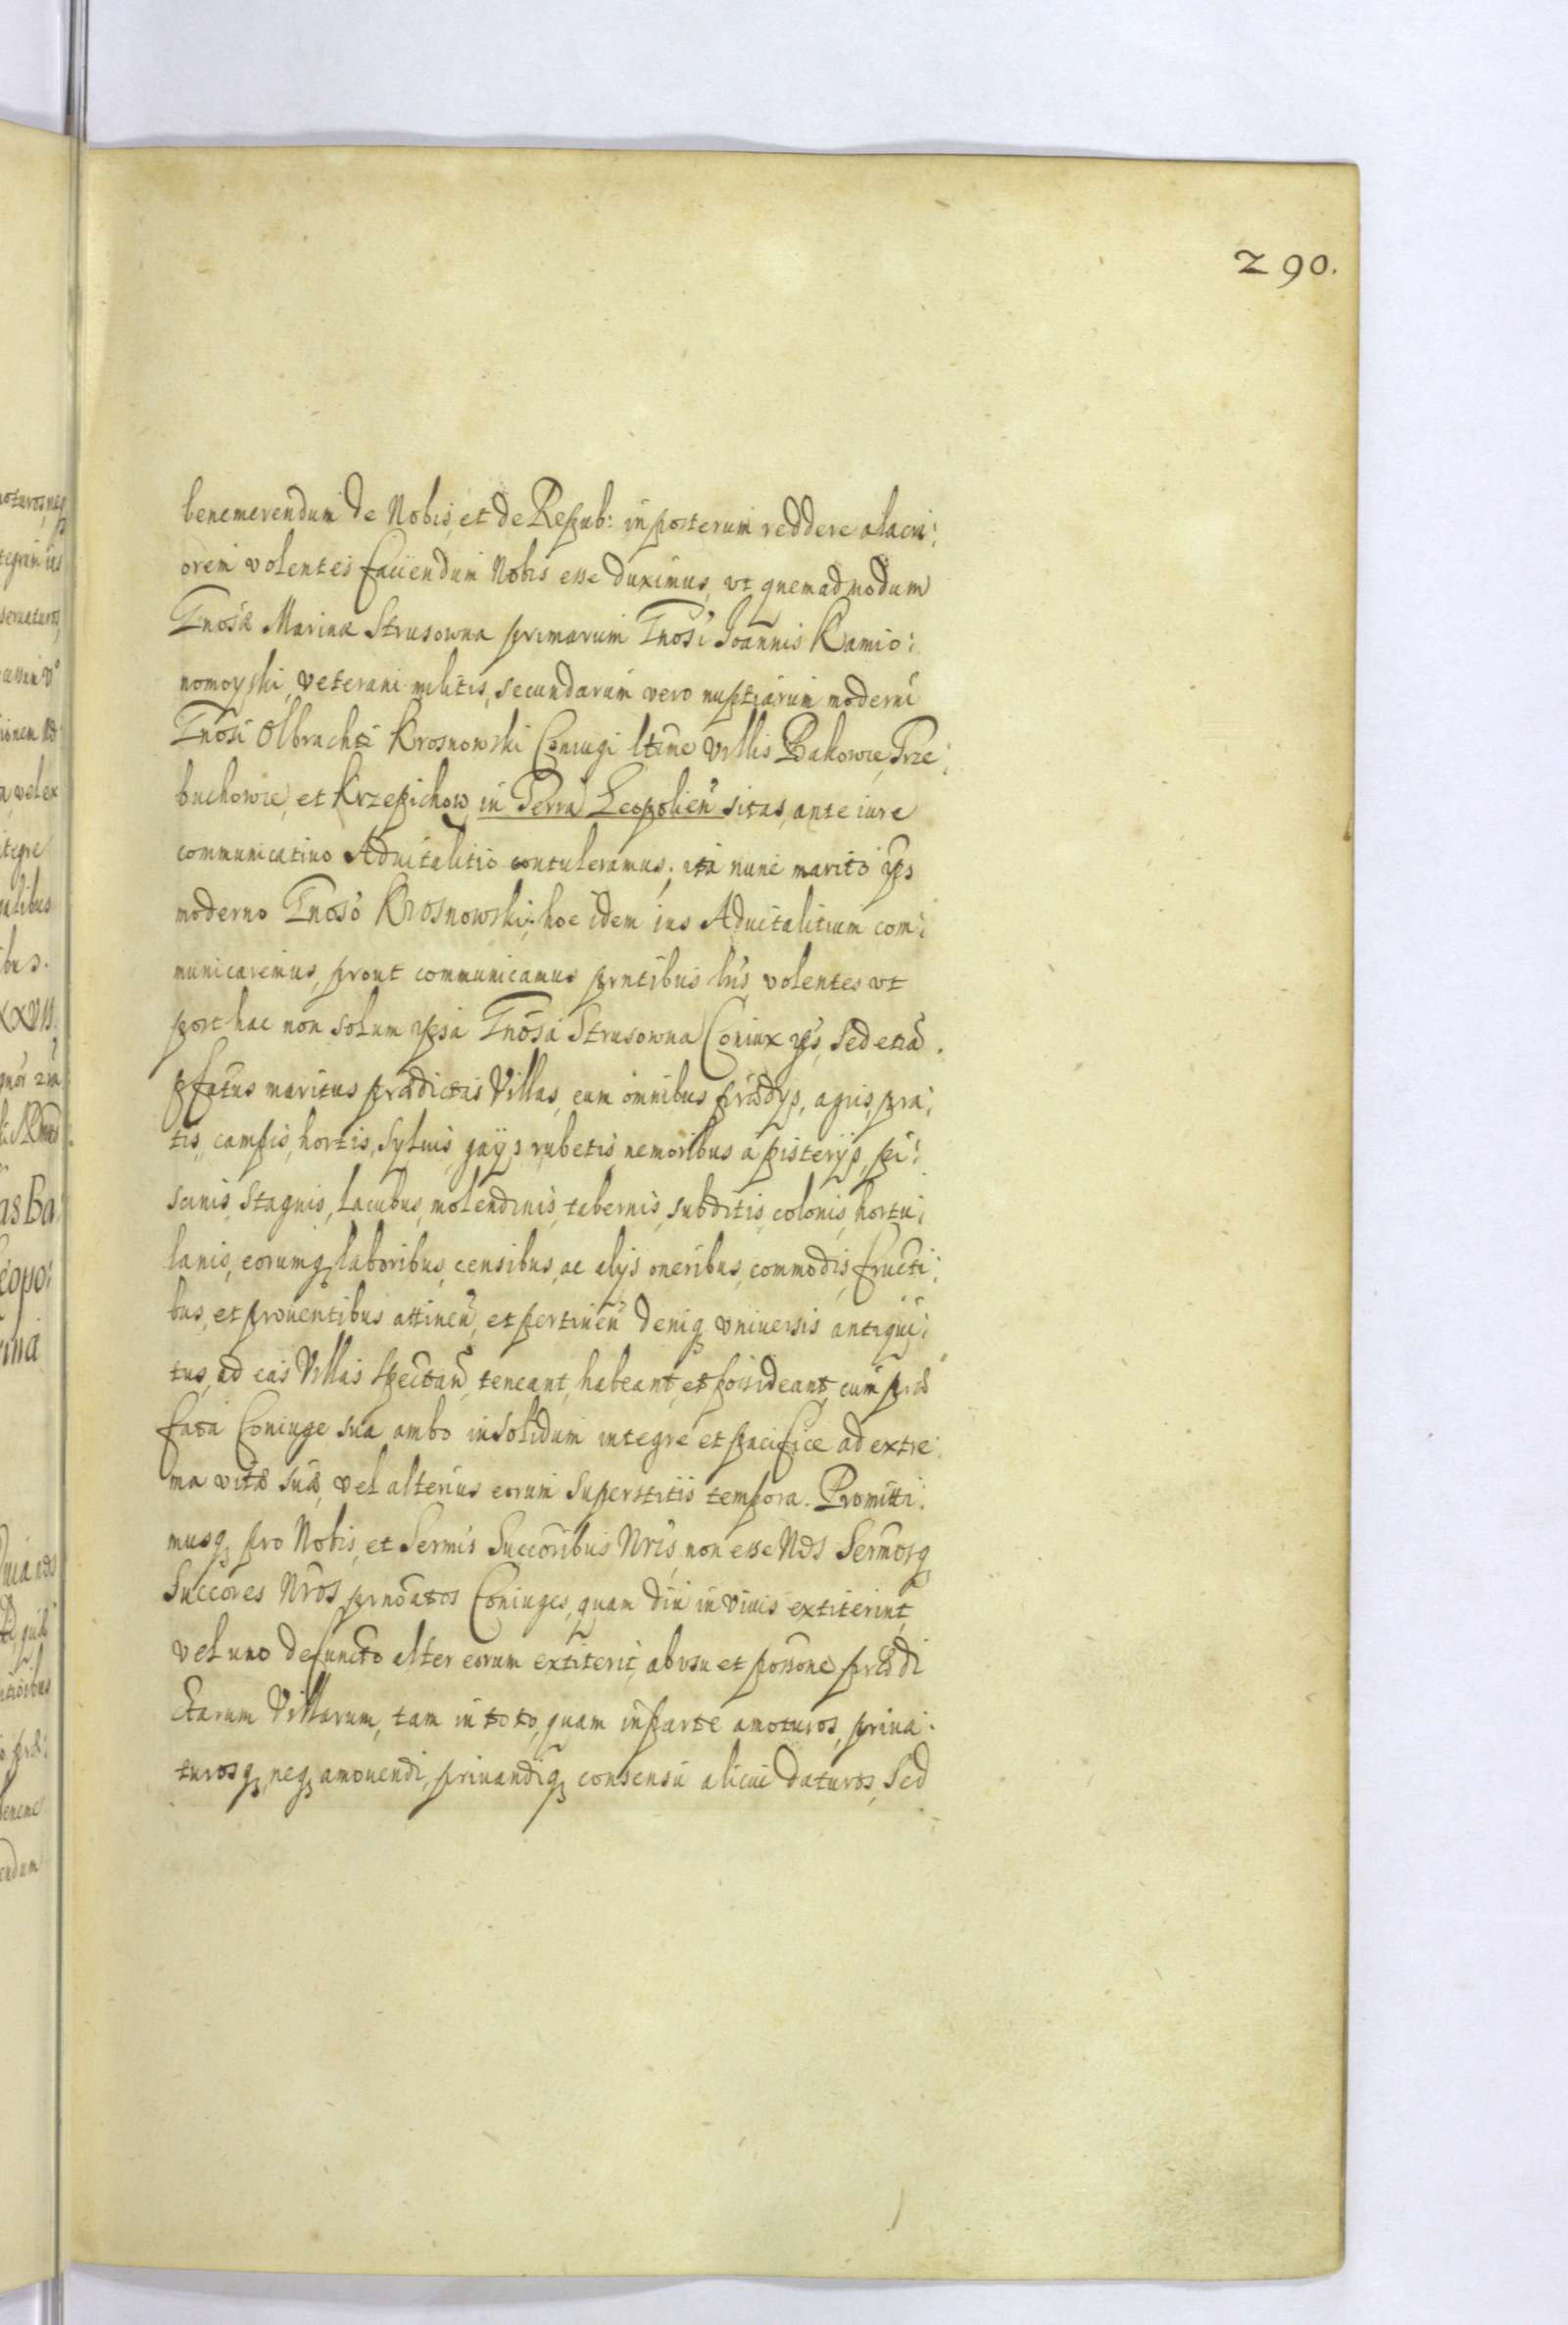 290.
benemerendum de Nobis, et de Repub: in posterum reddere alacri:
orem volentes faciendum Nobis esse duximus, vt quemadmodum
Gnosæ Marinæ Strusowna primarum Gnosi Joannis Kamio:
nomoyski, veterani militis, secundarum vero nuptiarum moderni
Gnosi Olbrachti Krosnowski Coniugi ltime Villis Bakowce, Trze:
buchowce, et Krzepichow in Terra Leopolien sitas, ante iure
communicatiuo Aduitalitio contuleramus, ita nunc marito ips
moderno Gnoso Krosnowski, hoc idem ius Aduitalitium com:
municaremus, prout communicamus prntibus lris volentes vt
post hac non solum ipsa Gnosa Strusowna Coniux ips, sed etia
pfatus maritus prædictas Villas, cum omnibus prædys, agris, pra:
tis, campis, hortis, syluis, gays rubetis nemoribus apisterijs, pi:
scinis, stagnis, lacubus, molendinis, tabernis, subditis, colonis, hortu:
lanis, eorumq laboribus, censibus, ac alijs oneribus, commodis, fructi:
bus, et prouentibus attinen, et pertinen deniq vniuersis antiqui:
tus, ad eas Villas spectan, teneant, habeant, et possideant, cum præ
fata Coniuge sua ambo insolidum integre et pacifice ad extre:
ma vitæ suæ, vel alterius eorum superstitis tempora. Promitti:
musq pro Nobis, et Sermis Succoribus Nris, non esse Nos Sermosq
Succores Nros prnoatos Coniuges, quam diu in viuis extiterint,
vel uno defuncto alter eorum extiterit, ab vsu et possone prædi
ctarum Villarum, tam in toto, quam in parte amoturos, priua:
turosq, neq amouendi, priuandiq consensu alicui daturos, Sed